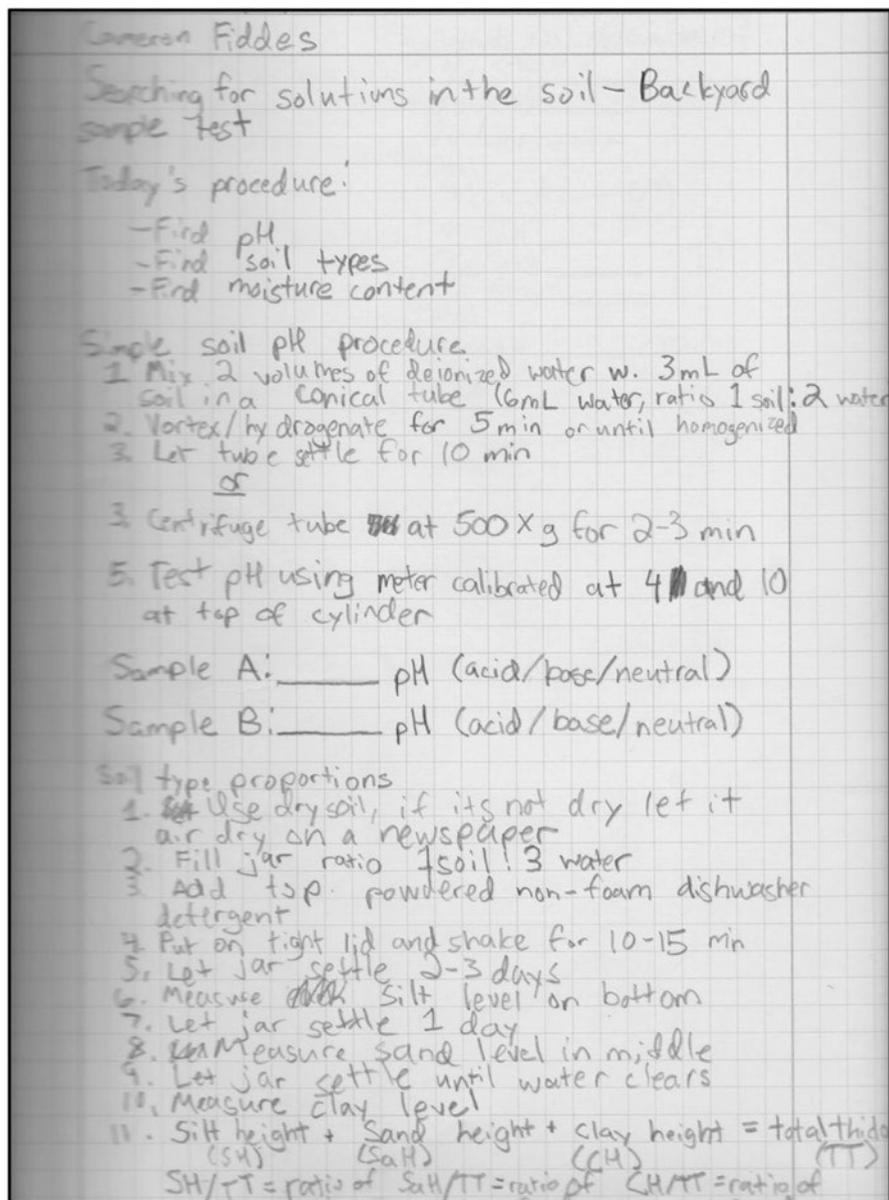 Cameron Fiddes
Searching for solutions in the soil - Backyard
sample test
Today's procedure:
- Find pH
- Find soil types
- Find moisture content
Simple soil pH procedure
1. Mix 2 volumes of deionized water w. 3mL of
soil in a conical tube (6mL water, ratio 1 soil:2 water
2. Vortex/hydrogenate for 5 min or until homogenized
3. Let tube settle for 10 min
or
3. Centrifuge tube at 500 x g for 2-3 min
5. Test pH using meter calibrated at 4 and 10
at top of cylinder
Sample A:______ pH (acid/base/neutral)
Sample B:______ pH (acid/base/neutral)
Soil type proportions
1. Use dry soil, if its not dry let it
air dry on a newspaper
2. Fill jar ratio 1 soil : 3 water
3. Add tsp. powdered non-foam dishwasher
detergent
4. Put on tight lid and shake for 10-15 min
5. Let jar settle 2-3 days
6. Measure silt level on bottom
7. Let jar settle 1 day
8. Measure sand level in middle
9. Let jar settle until water clears
10. Measure clay level
11. Silt height + Sand height + clay height = total
(SH) (SaH) (CH) (TT)
SH/TT = ratio of SaH/TT = ratio of CH/TT = ratio of